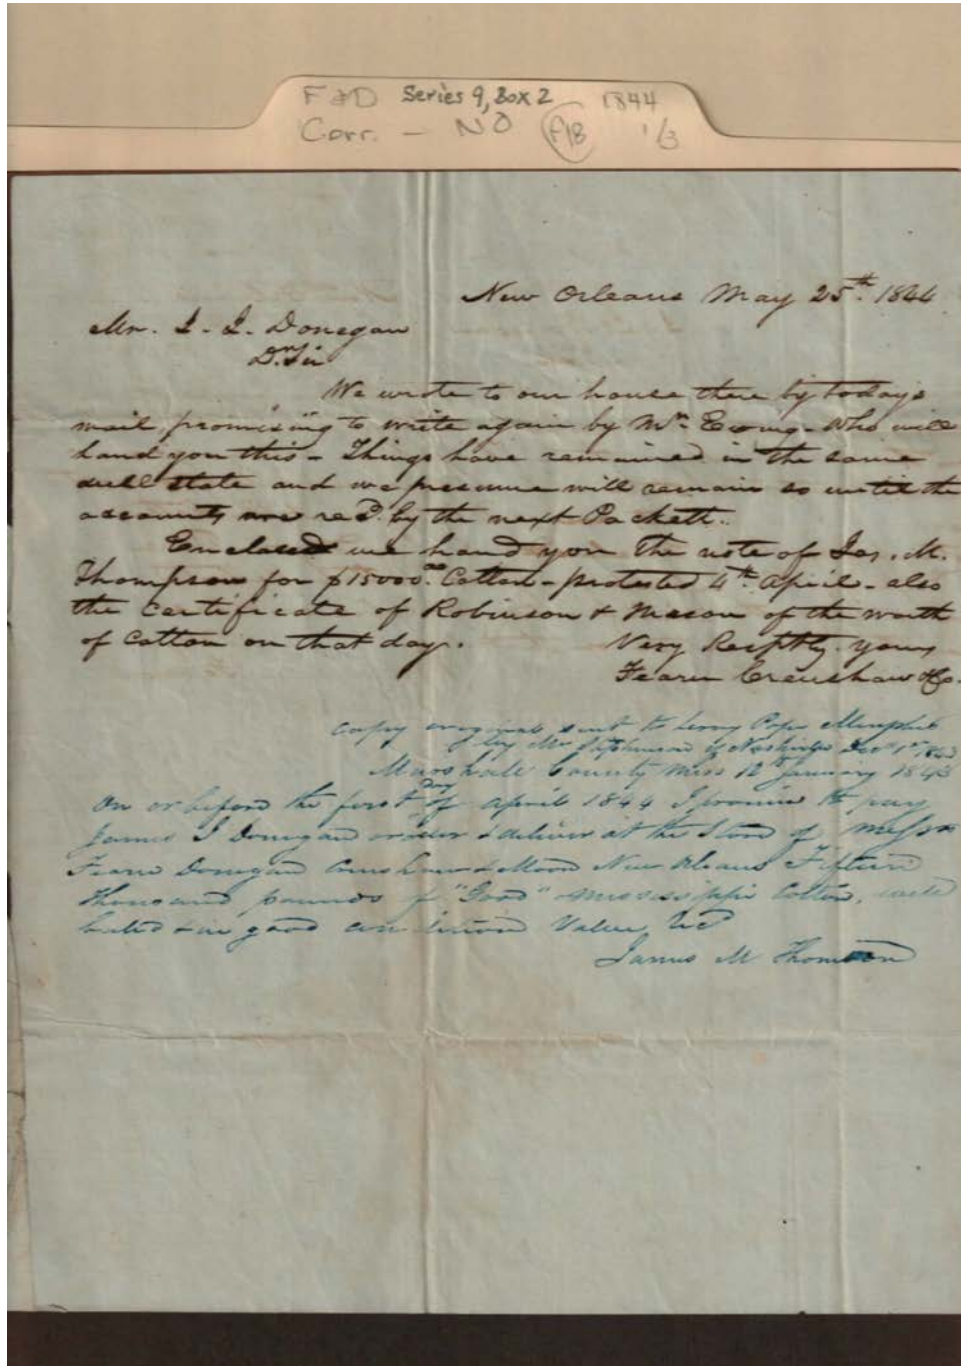 F & D Series 9, Box 2 1844
Corr. - NO F18 1/3
New Orleans May 25th. 1844
Mr. J. J. Donegan
Dr. Sir
We wrote to our house there by todays
mail, promising to write again by Mr. Ewing - Who will
hand you this - Things have remained in the same
dull state and we presume will remain so until the
accounts are recd. by the next Packett.
Enclosed we hand you the note of Jas. M.
Thompson for $15000.00 Cotton - protested 4th April - also
the certificate of Robinson & Mason of the worth
of Cotton on that day.
Very Respfty. yours
Fearn Crenshaw & Co.
Copy original sent to Leroy Pope Memphis
by Mr of Nashville Decr 1st
Marshall County Miss 12 January 1843
On or before the first day of April 1844 I promise to pay
James J Donegan order & deliver at the Store of Messrs
Fearn Donegan Crenshaw & Moon New Orleans Fifteen
Thousand pounds of "Good" Mississippi Cotton, well
baled & in good condition Value recd
James M Thomson